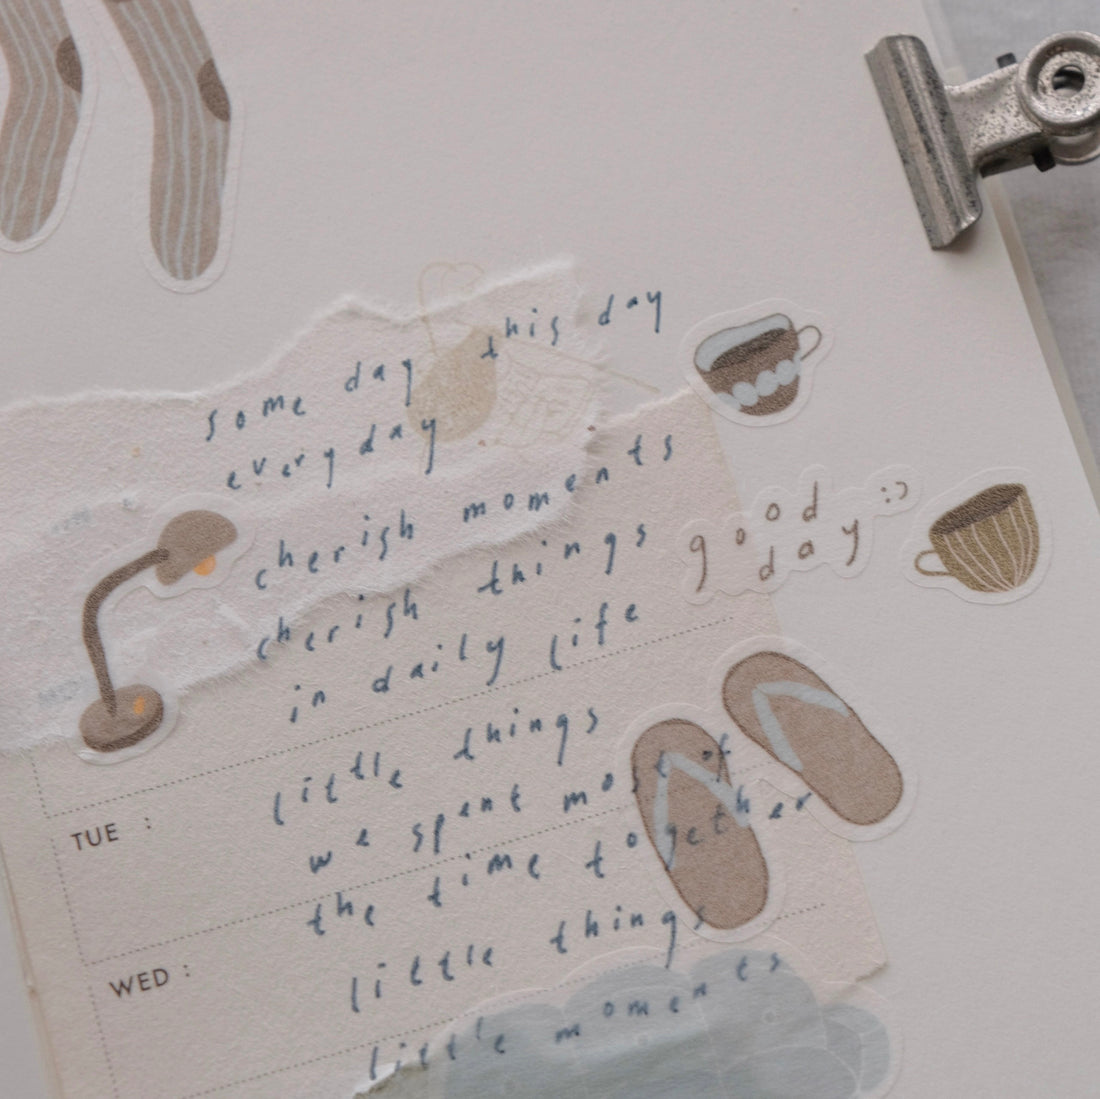 some day this day
every day
cherish moments
good :)
day
cherish things
in daily life
little things
TUE :
we spent most of
the time together
WED :
little things
little moments